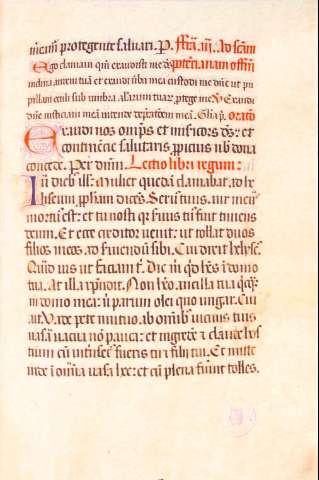 mereamur protegente saluari. P. Fr̃a. iij. Ad sc̃am
Ego clamaui qm̃ exaudisti me ds̃ potẽtianam offm̃
inclina aurem tuã et exaudi ũba mea custodi me dñe ut pu
pillam oculi sub umbra alarum tuarͬ protege me ỹ Exaudi
dñe iusticiam meã intende deprecatõem meã. Glia p̃. oratio
Exaudi nos omp̃s et misericors ds̃: et
continẽcie salutaris propicius nb̃ dona
concede. Per dñm. Lectio libri regum:
In dieb̃ ill̃: Mulier quedã clamabat ad he
liseum prophetam dicẽs. Seru9 tuus uir meus
mortuus est: et tu nosti q̃ seruus tu9 fuit timens
deum. Et ecce creditor uenit: ut tollat duos
filios meos ad seruiendũ sibi. Cui dixit helyse9.
Quid uis ut faciam t̃. Dic m̃ qd̃ hẽs ĩ domo
tua. At illa rñdit. Non hẽo ancilla tua q̃cq̃
in domo mea: nisi parum olei quo ungar. Cui
ait. Vade pete mutuo ab omib9 uicinis tuis
uasa uacua nõ pauca: et ingredere et claude hos
tium cũ intrinsecus fueris tu et filii tui. Et mitte
inde ĩ omĩa uasa hec: et cũ plena fuerint tolles.